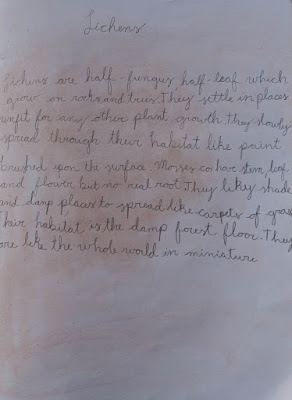 Lichens
Lichens are half-fungus, half-leaf which
grow on rocks and tries. They settle in places
unfit for any other plant growth. They slowly
spread through their habitat like paint
brushed upon the surface. Mosses have stem, leaf
and flower but no real root. They liky shade
and damp places to spread like carpets of grass
Thair habitat is the damp forest floor. They
are like the whole world in miniature